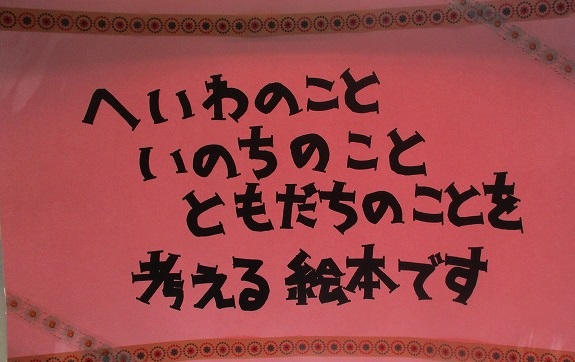 へいわのこと
いのちのこと
ともだちのことを
考える絵本です